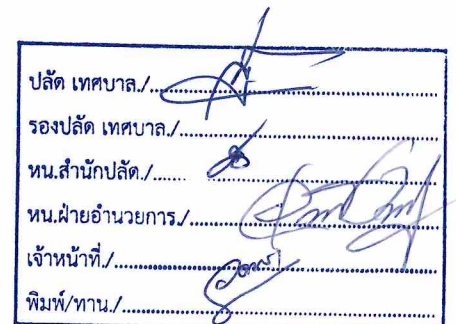 ปลัด เทศบาล./........................
รองปลัด เทศบาล./........................
หน.สำนักปลัด./........................
หน.ฝ่ายอำนวยการ./........................
เจ้าหน้าที่./........................
พิมพ์/ทาน./........................